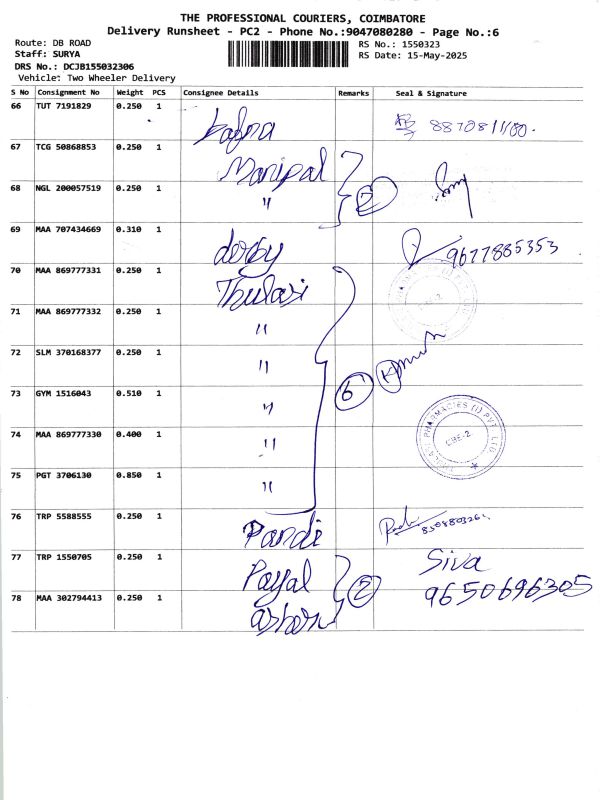 THE PROFESSIONAL COURIERS, COIMBATORE
Delivery Runsheet - PC2 - Phone No.:9047080280 - Page No.:6
Route: DB ROAD
Staff: SURYA
DRS No.: DCJB155032306
Vehicle: Two Wheeler Delivery
RS No.: 1550323
RS Date: 15-May-2025
S No Consignment No Weight PCS Consignee Details Remarks Seal & Signature
66 TUT 7191829 0.250 1
67 TCG 50868853 0.250 1 Manipal
68 NGL 200057519 0.250 1 " 2
69 MAA 707434669 0.310 1 derby 9677885353
70 MAA 869777331 0.250 1 Thulasi
71 MAA 869777332 0.250 1 "
72 SLM 370168377 0.250 1 "
73 GYM 1516043 0.510 1 " 6
74 MAA 869777330 0.400 1 "
75 PGT 3706130 0.850 1 "
76 TRP 5588555 0.250 1 Pandi
77 TRP 1550705 0.250 1 Payal Siva
78 MAA 302794413 0.250 1 2 9650696305
PHARMACIES (I) PVT. LTD.
CBE-2